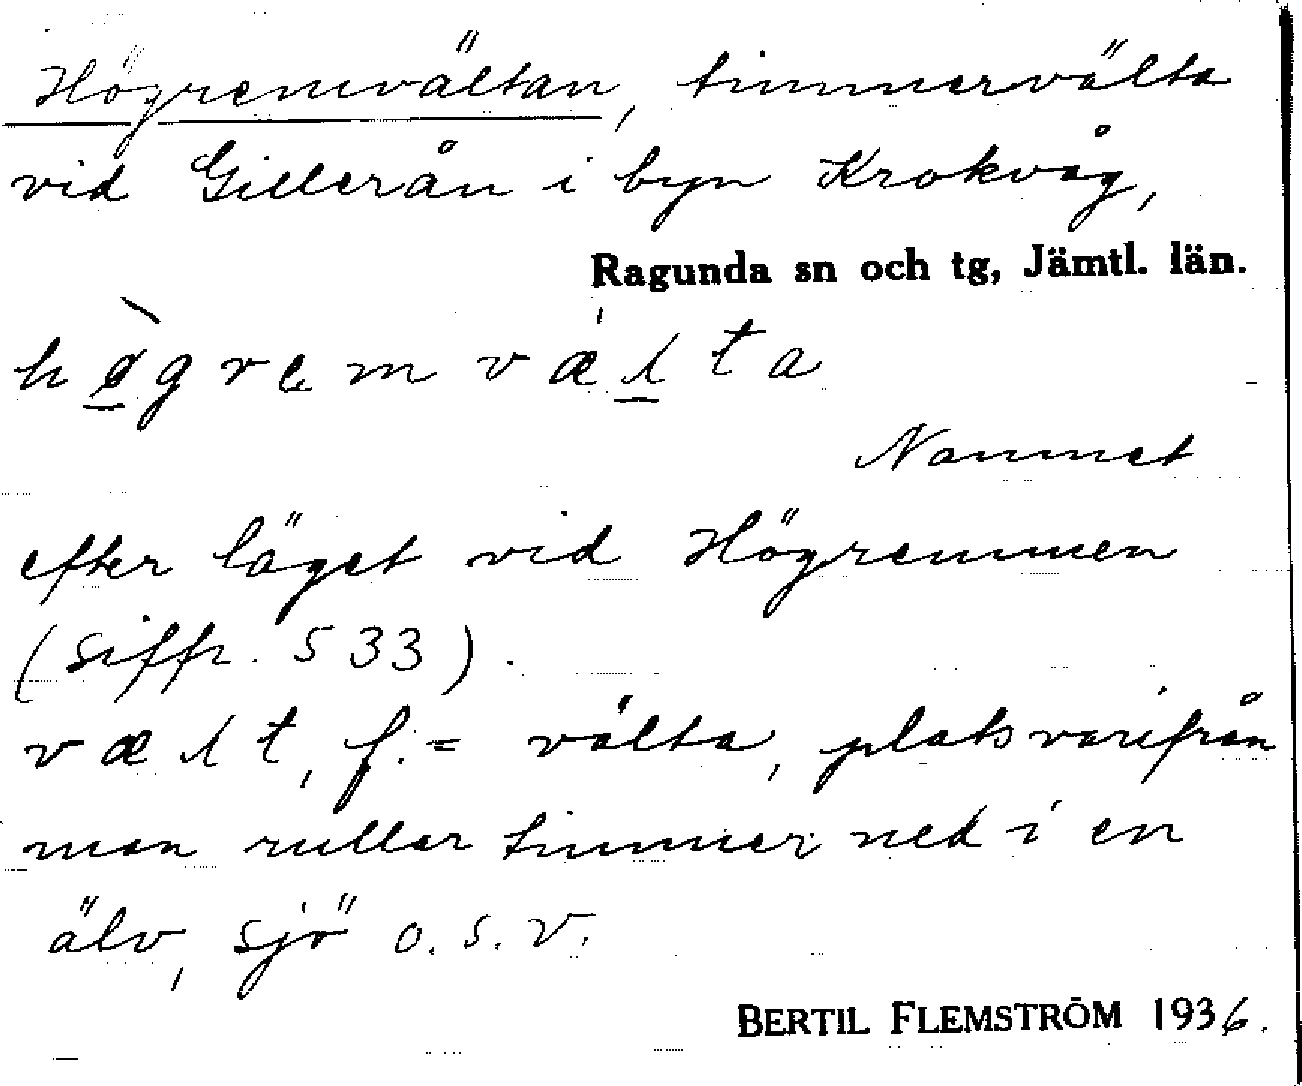 Högremvältan, timmervälta
vid Gillerån i byn Krokvåg,
Ragunda sn och tg, Jämtl. län.
høgremvælta
Namnet
efter läget vid Högremmen
(siffr. 533).
vælt, f. = välta, plats varifrån
man rullar timmer ned i en
älv, sjö o.s.v.
BERTIL FLEMSTRÖM 1936.